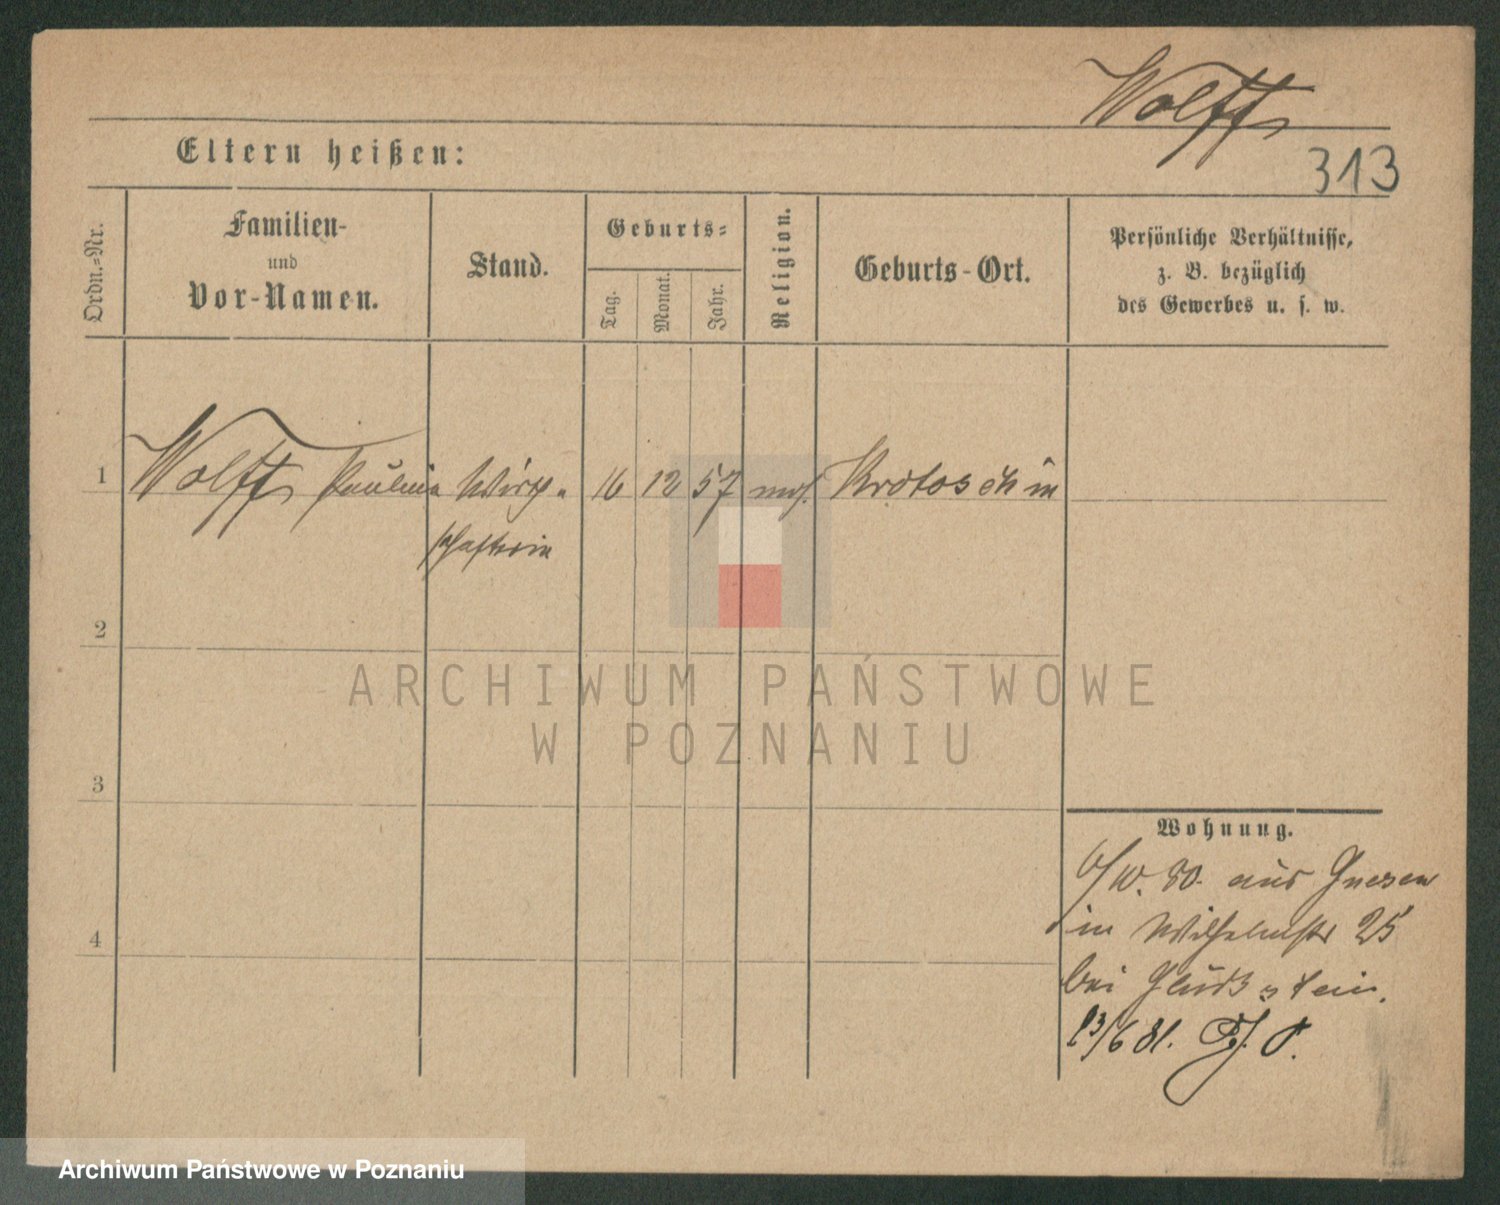 Wolff
313
Eltern heißen:
Ordn.-Nr.
Familien-
und
Vor-Namen.
Stand.
Geburts-
Tag.
Monat.
Jahr.
Religion.
Geburts-Ort.
Persönliche Verhältnisse,
z. B. bezüglich
des Gewerbes u. s. w.
1 Wolff Paulina Wirth- 16 12 57 mos. Krotoschin
schafterin
2
ARCHIWUM PAŃSTWOWE
W POZNANIU
3
4
Wohnung.
6/10. 80. aus Gnesen
in Wilhelmstr 25
bei
/6 81.
Archiwum Państwowe w Poznaniu